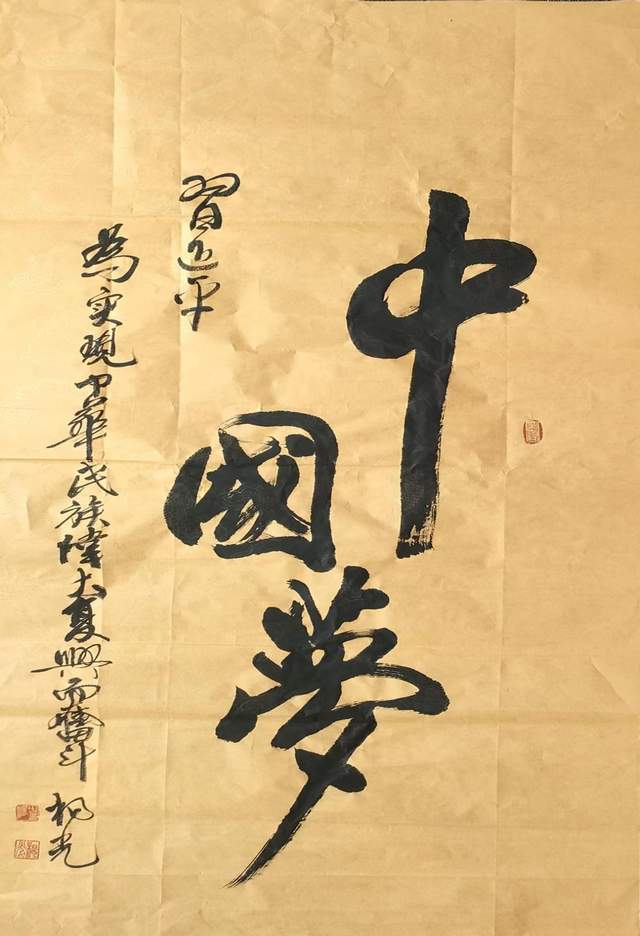 中國夢
習近平
為实現中華民族偉大复興而奮斗
楊光